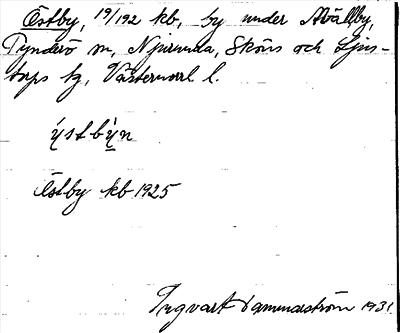 Östby, 19/192 kb, by under Avälby,
Tynderö sn, Njurunda, Sköns och Ljus-
torps tg, Västernorrl l.
ýstbỳn
Östby kb 1925
Ingvart Dammström 1931